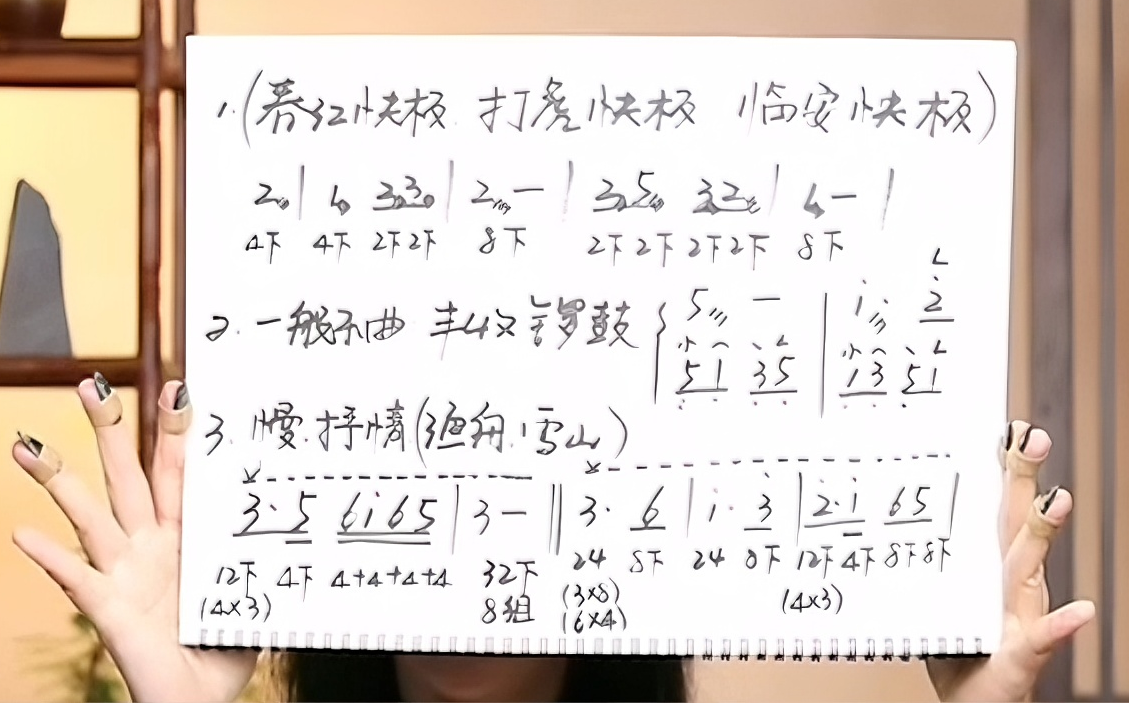 1.(春江快板 打虎快板 临安快板)
2 | 6 3 3 | 2 — | 3 5 3 2 | 6 — |
4下 4下 2下2下 8下 2下2下 2下2下 8下
2. 一般乐曲 丰收锣鼓 { 5 — | i 2
5 1 3 5 | 1 3 5 1
3. 慢.抒情(渔舟.雪山)
3· 5 6i65 | 3 — || 3· 6 | i· 3 | 2·i 65 |
12下 4下 4+4+4+4 32下 24 8下 24 8下 12下 4下 8下8下
(4×3) 8组 (3×8) (4×3)
(6×4)